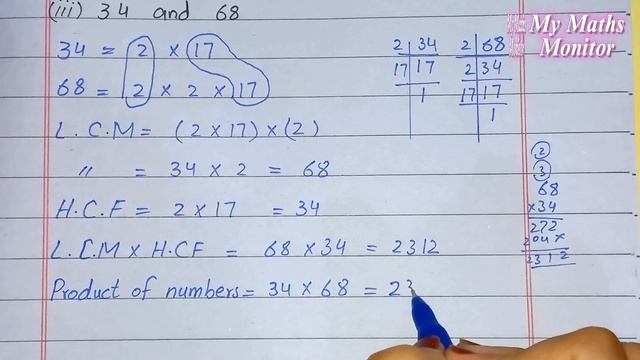 (iii) 34 and 68
My Maths
Monitor
34 = 2 × 17
68 = 2 × 2 × 17
2 | 34
17 | 17
1
2 | 68
2 | 34
17 | 17
1
L.C.M = (2 × 17) × (2)
〃 = 34 × 2 = 68
H.C.F = 2 × 17 = 34
L.C.M × H.C.F = 68 × 34 = 2312
Product of numbers = 34 × 68 = 23
2
3
68
×34
272
204×
2312